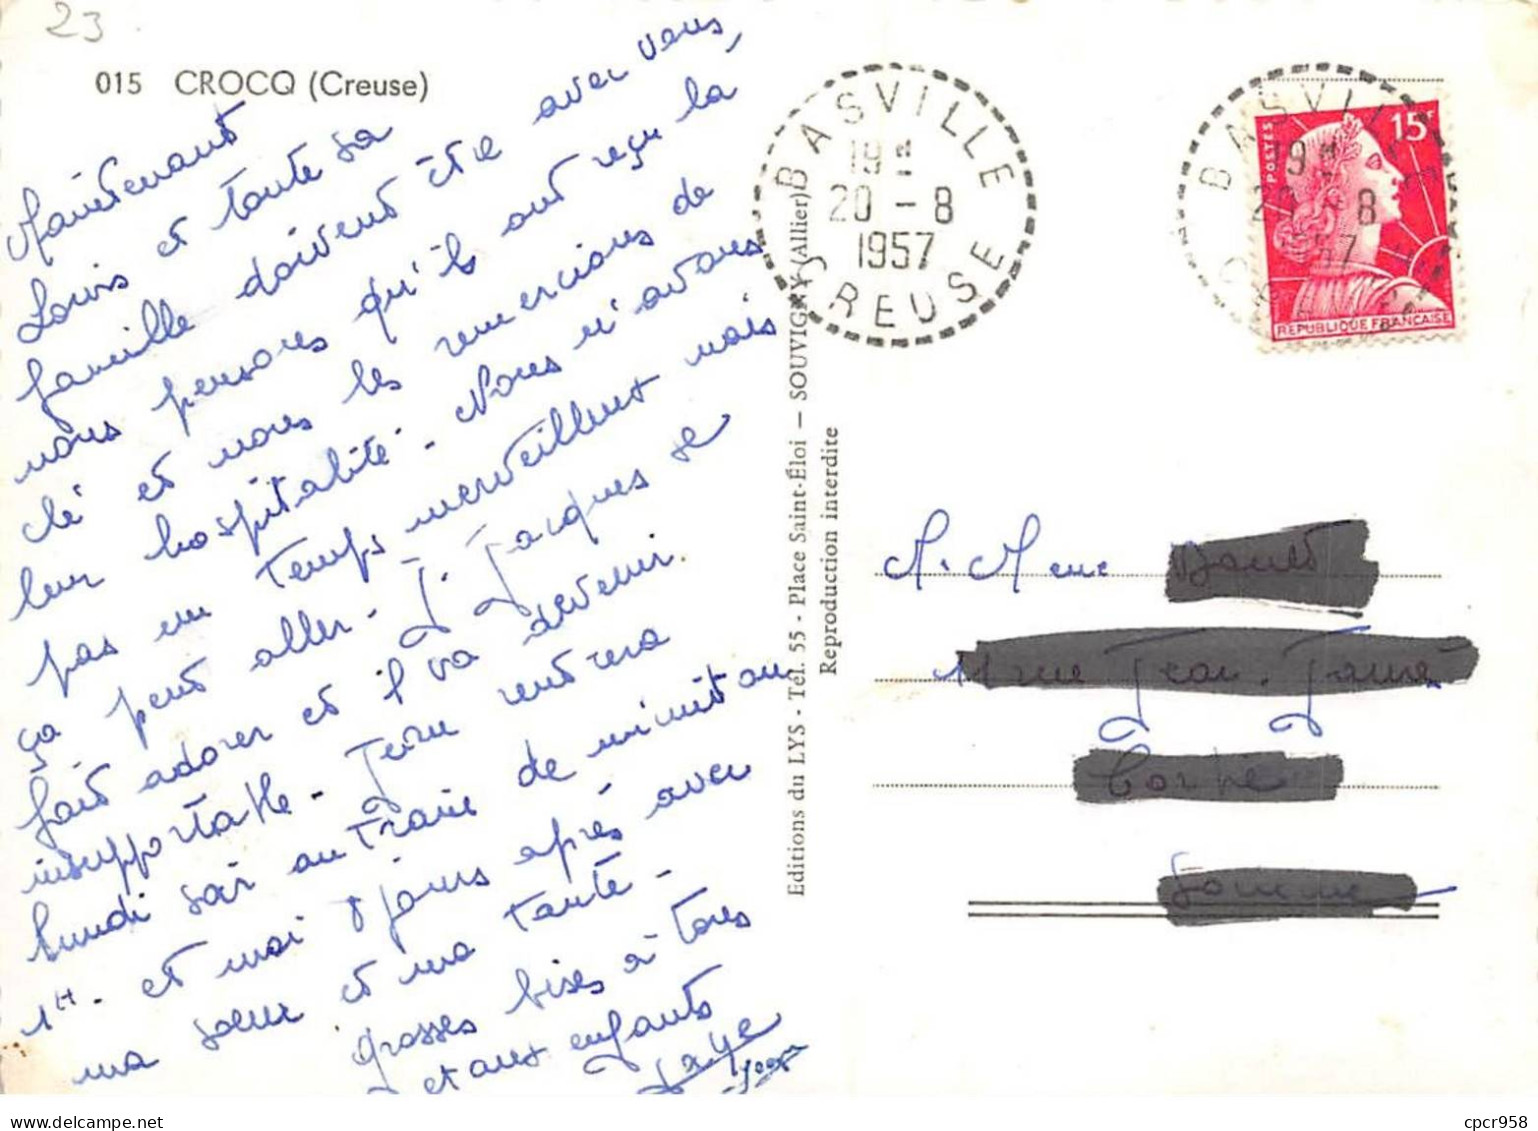 23
015 CROCQ (Creuse)
Maintenant
Louis et toute sa
famille doivent être avec vous,
nous pensons qu'ils ont reçu la
clé et nous les remercions de
leur hospitalité. Nous n'avons
pas un temps merveilleux mais
ça peut aller. J. Jacques se
fait adorer et il va devenir
insupportable. Jean rentrera
lundi soir au train de minuit ou
1H. et moi 8 jours après avec
ma soeur et ma tante.
Grosses bises à tous
et aux enfants
BASVILLE
19H
20 - 8
1957
CREUSE
BASVILLE
19H
8
57
POSTES
15F
REPUBLIQUE FRANÇAISE
Editions du LYS - Tél. 55 - Place Saint-Éloi — SOUVIGNY (Allier)
Reproduction interdite
M. Mme
rue Jean
Corbie
Somme
cpcr958